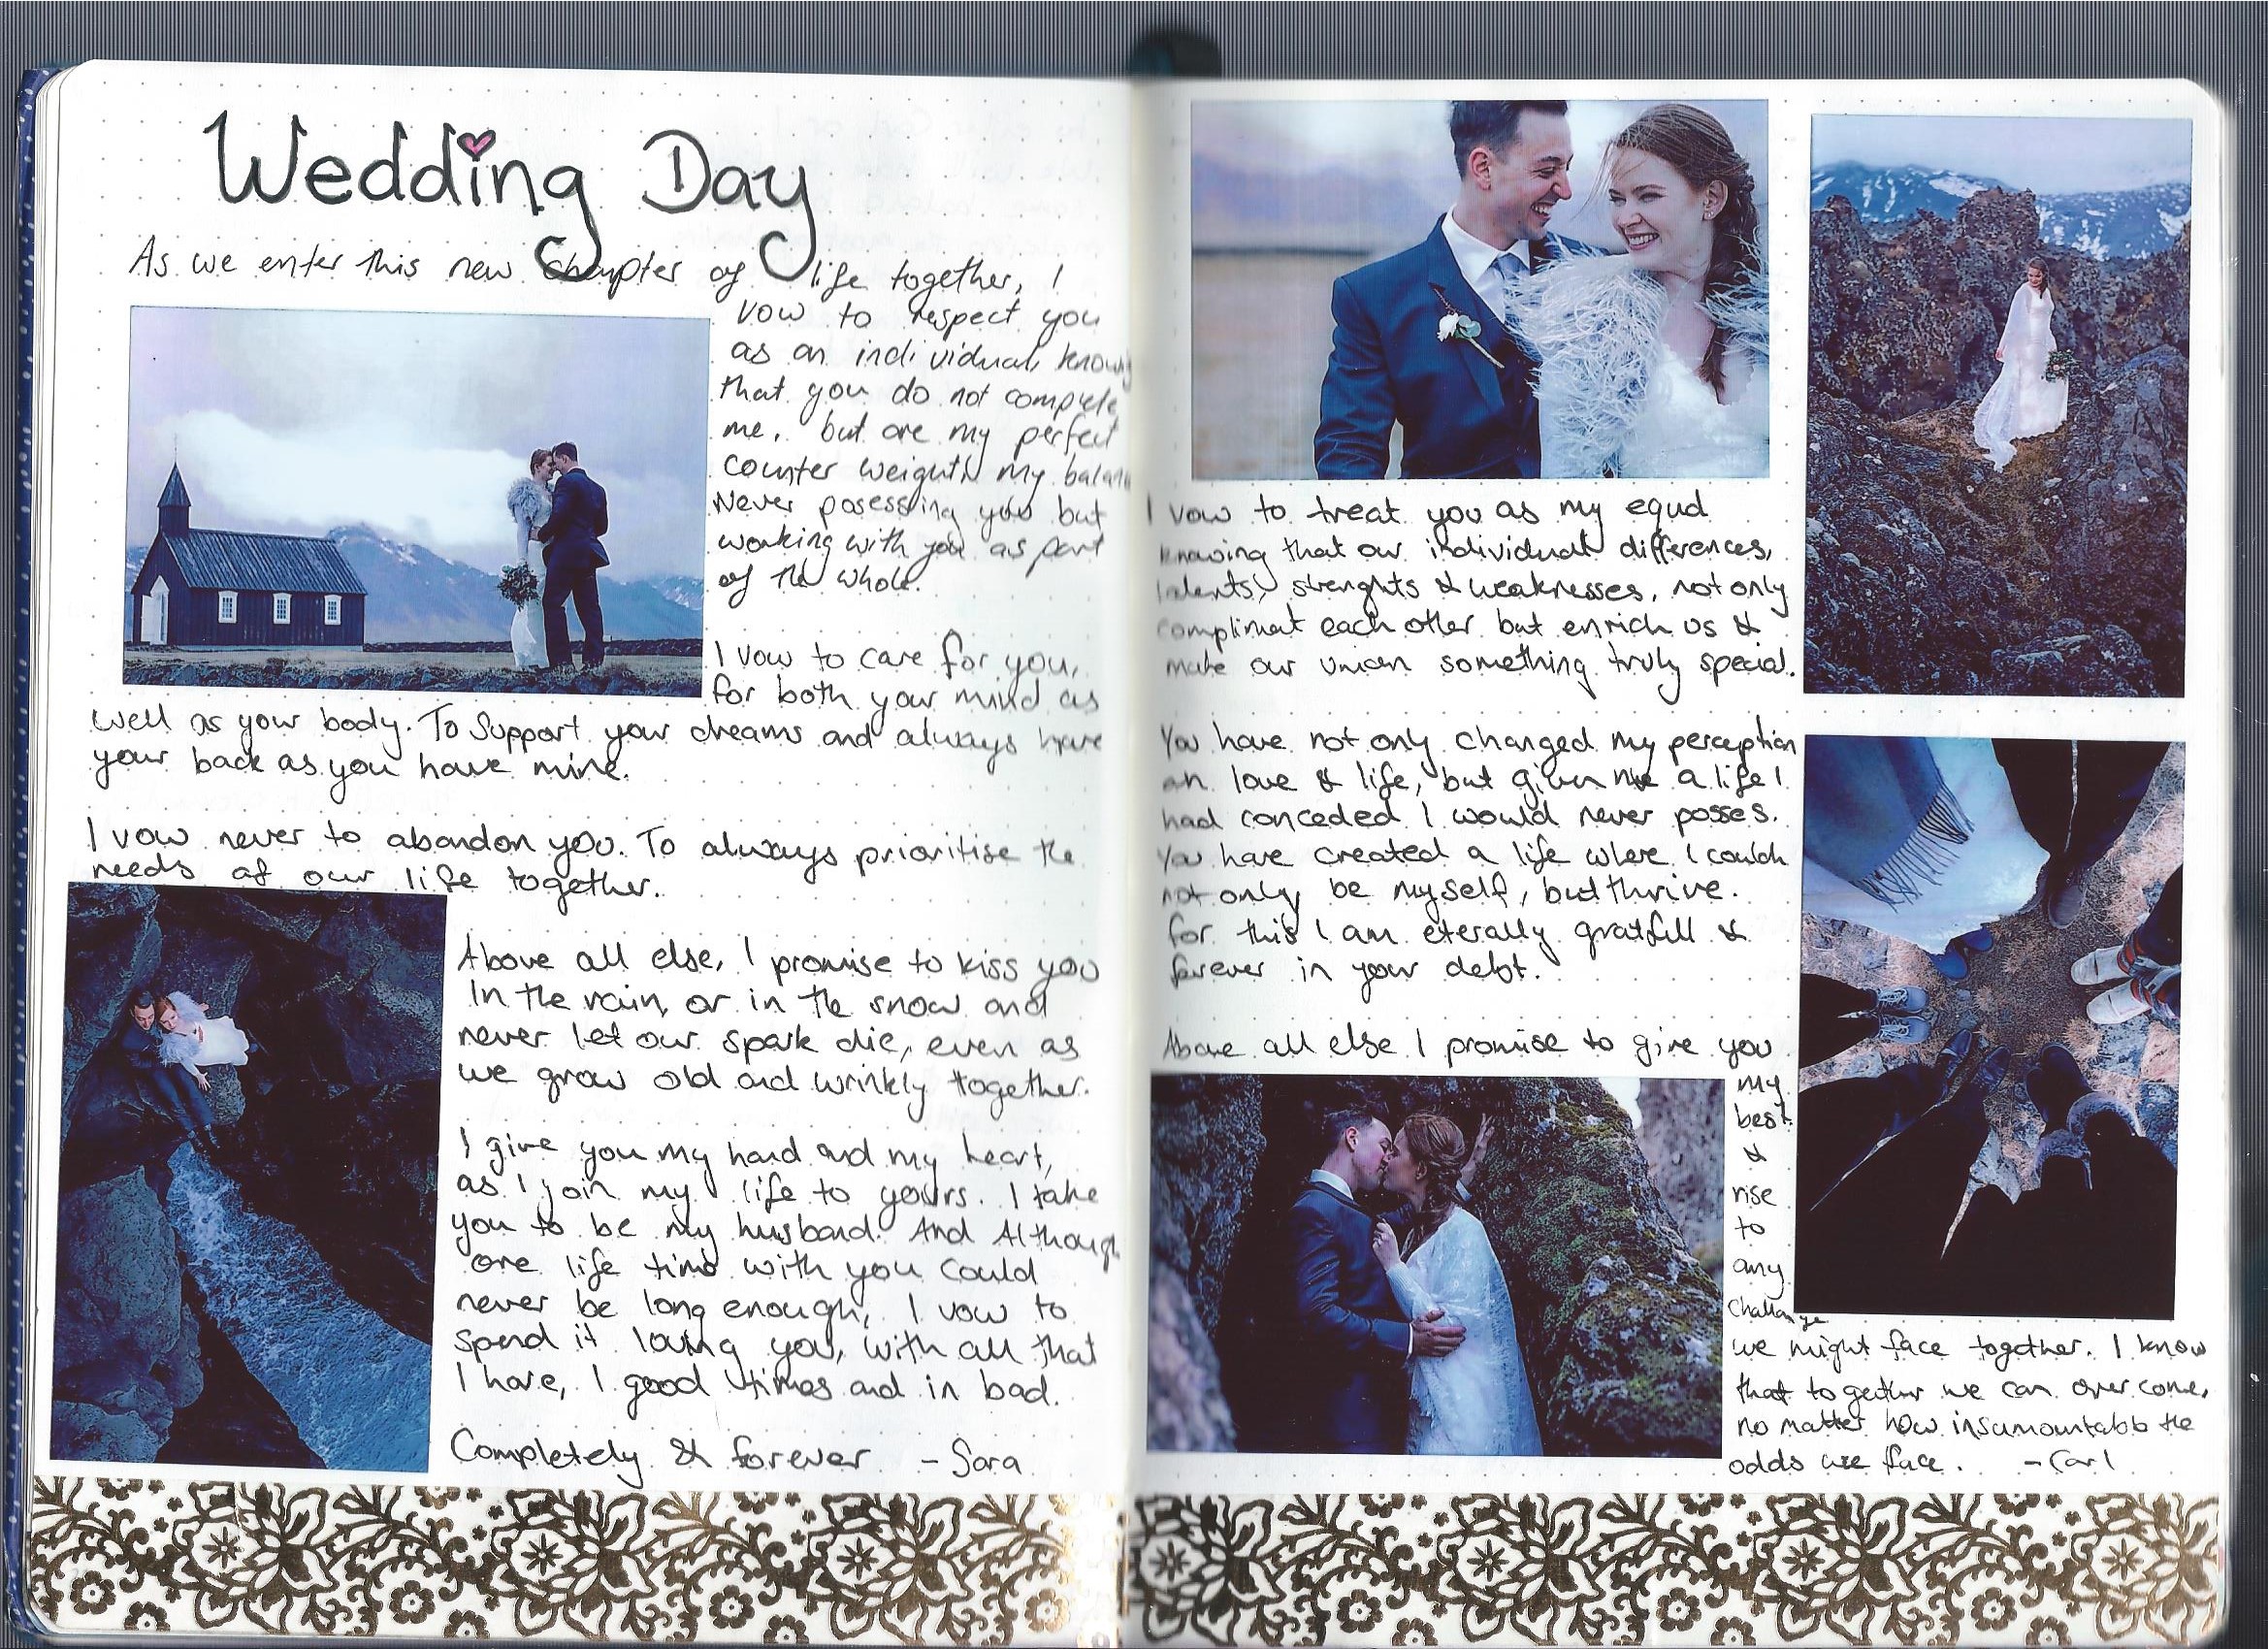 Wedding Day
As we enter this new chapter of life together, I
vow to respect you
as an individual, knowing
that you do not complete
me, but are my perfect
counter weight, my balance
Never posessing you but
working with you as part
of the whole.
I vow to care for you,
for both your mind as
well as your body. To Support your dreams and always have
your back as you have mine.
I vow never to abandon you. To always prioritise the
needs of our life together.
Above all else, I promise to kiss you
In the rain, or in the snow and
never let our spark die, even as
we grow old and wrinkly together.
I give you my hand and my heart,
as I join my life to yours. I take
you to be my husband. And Although
one life time with you could
never be long enough, I vow to
spend it loving you, with all that
I have, I good times and in bad.
Completely & forever - Sara
I vow to treat you as my equal
knowing that our individual differences,
talents, strenghts & weaknesses, not only
compliment each other but enrich us &
make our union something truly special.
You have not only changed my perception
on love & life, but given me a life I
had conceded I would never posses.
You have created a life where I could
not only be myself, but thrive.
for this I am eterally gratfull &
forever in your debt.
Above all else I promise to give you
my
best
&
rise
to
any
challange
we might face together. I know
that together we can over come,
no matter how insumountable the
odds we face. - Carl